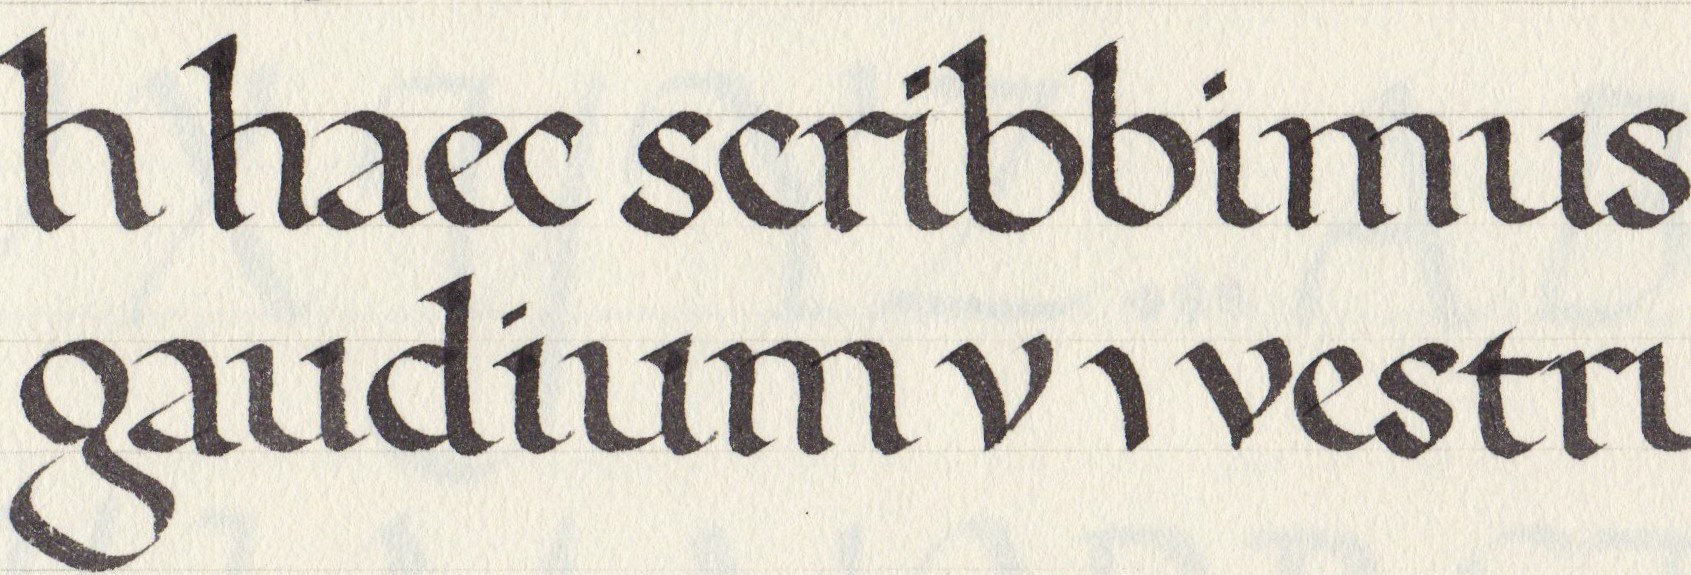 h haec scribbimus
gaudium v ı vestru